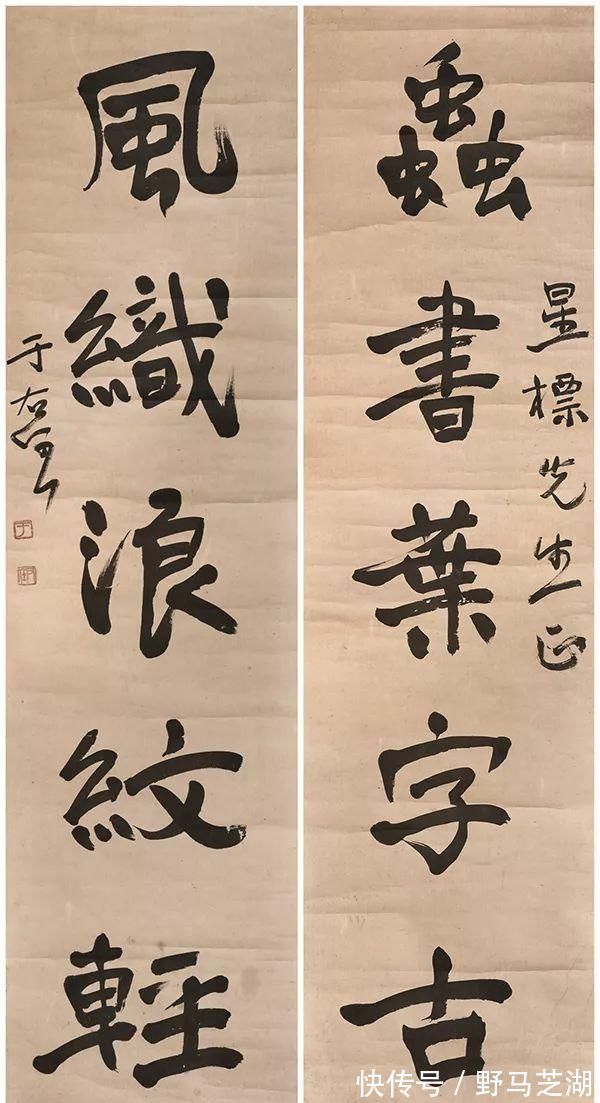 星標先生正
蟲書葉字古
風織浪紋輕
于右任
快传号/野马芝湖